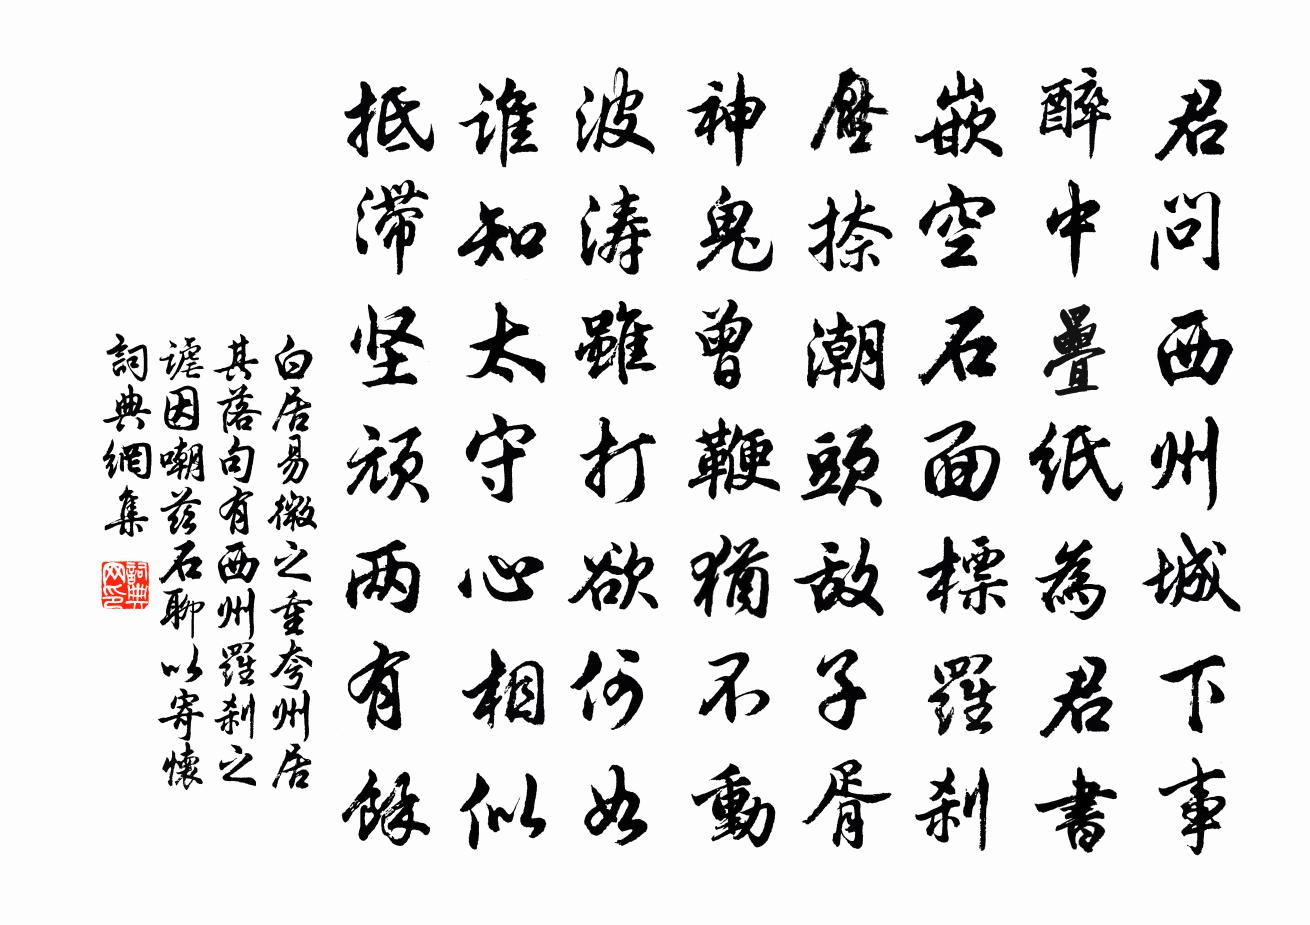 君问西州城下事
醉中疊纸為君書
嵌空石面標羅刹
壓捺潮頭敌子胥
神鬼曾鞭猶不動
波涛雖打欲何如
谁知太守心相似
抵滞坚顽两有餘
白居易微之重夸州居
其落句有西州羅刹之
謔因嘲兹石聊以寄懷
詞典網集
詞典
网印